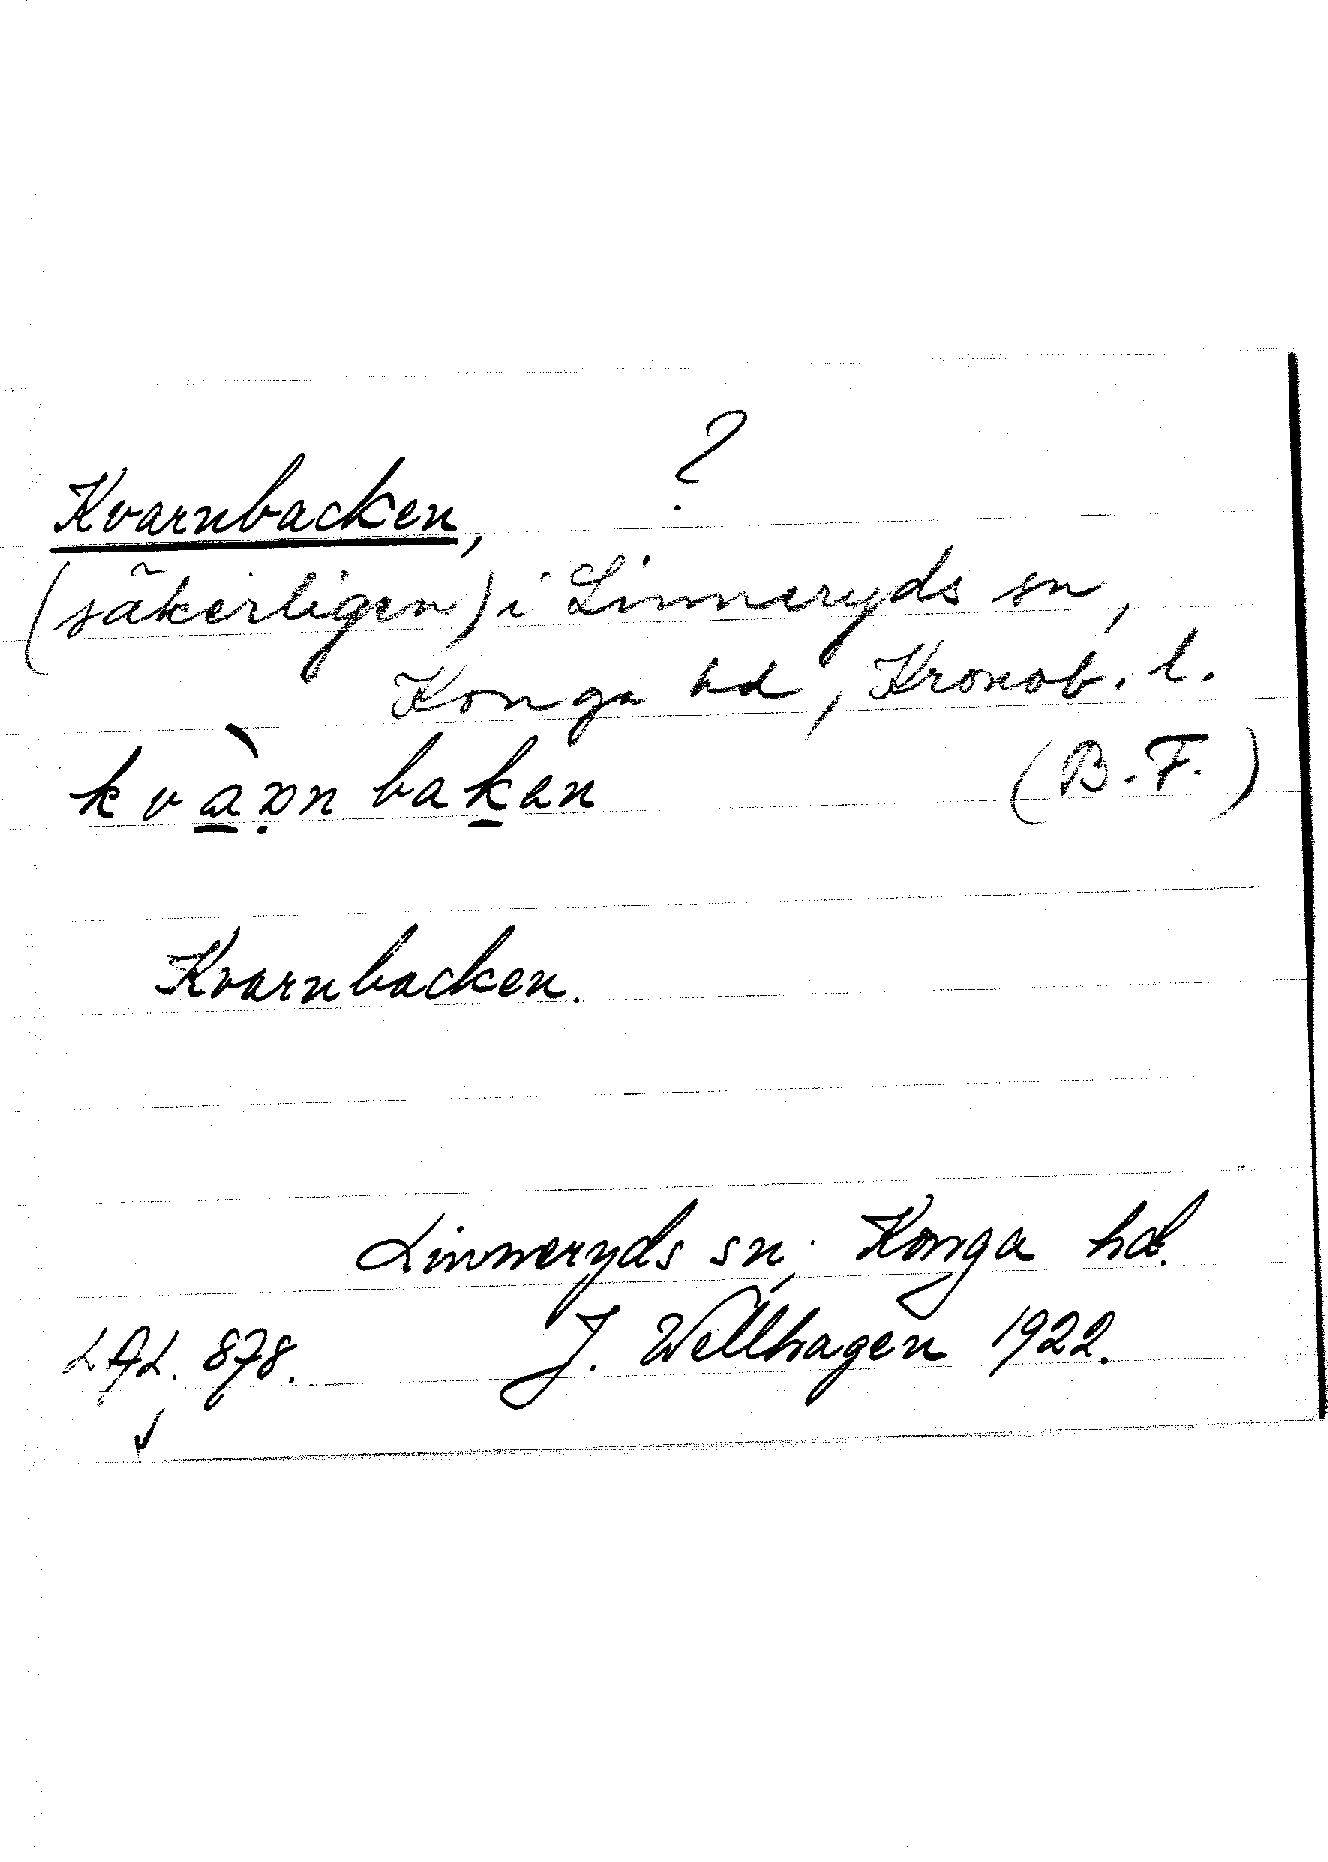 ?
Kvarnbacken,
(säkerligen) i Linneryds sn,
Konga hd, Kronob. l.
(B.F.)
Kvarnbacken.
Linneryds sn; Konga hd.
J. Wellhagen 1922.
LAL. 878.